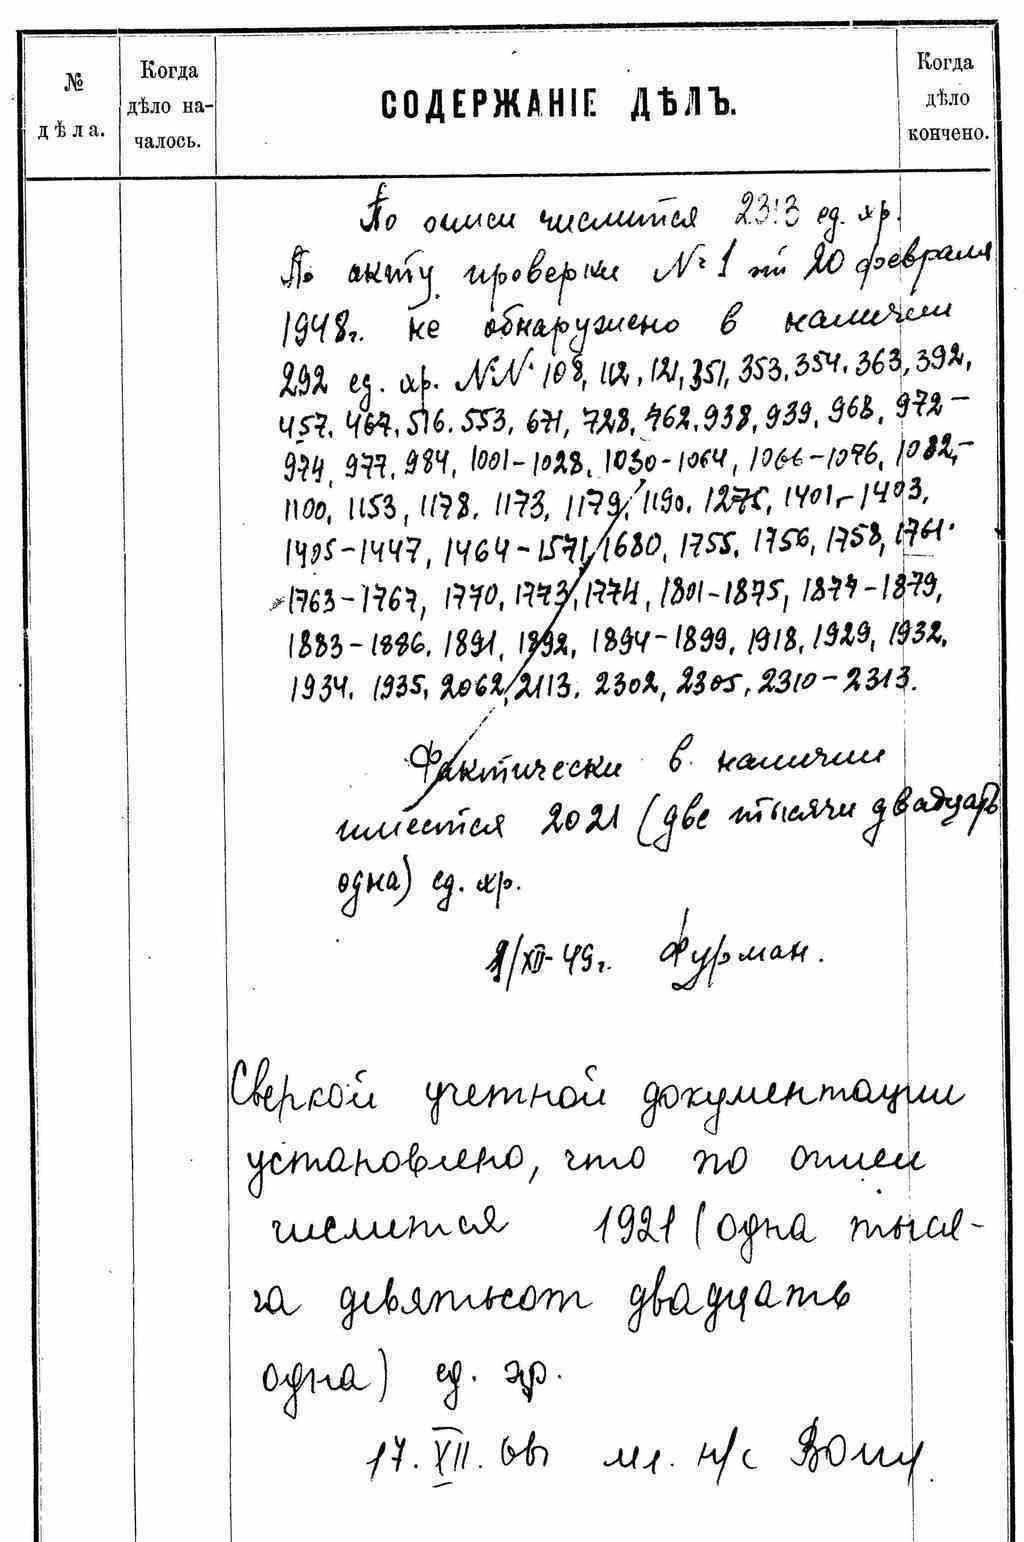 №
дѣла.
Когда
дѣло на-
чалось.
СОДЕРЖАНІЕ ДѢЛЪ.
Когда
дѣло
кончено.
По описи числится 2313 ед. хр.
По акту проверки № 1 от 20 февраля
1948г. не обнаружено в наличии
292 ед. хр. №№ 108, 112, 121, 351, 353, 354, 363, 392,
457, 467, 516, 553, 671, 728, 762, 938, 939, 968, 972-
974, 977, 984, 1001-1028, 1030-1064, 1066-1076, 1082,-
1100, 1153, 1178, 1173, 1179, 1190, 1275, 1401,-1403,
1405-1447, 1464-1571, 1680, 1755, 1756, 1758, 1761.
1763-1767, 1770, 1773, 1774, 1801-1875, 1877-1879,
1883-1886, 1891, 1892, 1894-1899, 1918, 1929, 1932,
1934, 1935, 2062, 2113, 2302, 2305, 2310-2313.
Фактически в наличии
имеется 2021 (две тысячи двадцать
одна) ед. хр.
/XII-49г. Фурман.
Сверкой учетной документации
установлено, что по описи
числится 1921 (одна тыся-
ча девятьсот двадцать
одна) ед. хр.
17. XII. мл. н/с